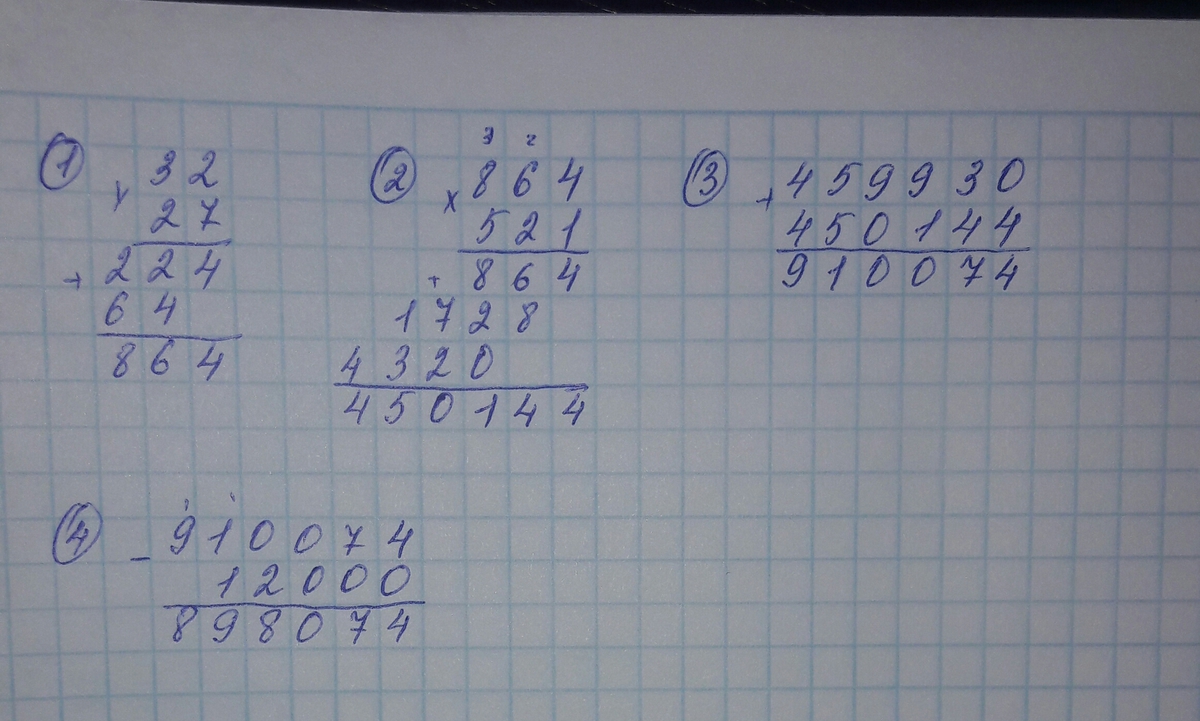 ① × 32
27
+ 224
64
864
② 3 2
× 864
521
+ 864
1728
4320
450144
③ + 459930
450144
910074
④ - 910074
12000
898074